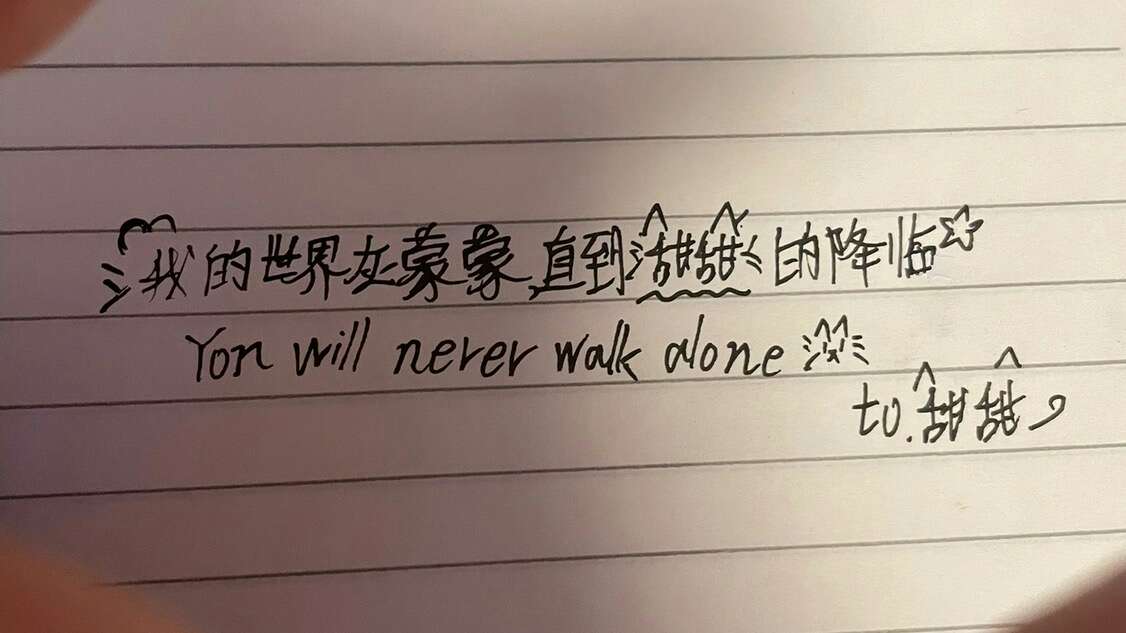 我的世界在蒙蒙,直到甜甜的降临
You will never walk alone
to.甜甜